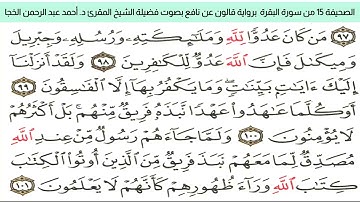 الصحيفة 15 من سورة البقرة برواية قالون عن نافع بصوت فضيلة الشيخ المقرئ د. أحمد عبد الرحمن الخجا
٩٧ مَن كَانَ عَدُوّٗا لِّلَّهِ وَمَلَٰٓئِكَتِهِۦ وَرُسُلِهِۦ وَجِبْرِيلَ
وَمِيكَٰٓئِلَ فَإِنَّ اَ۬للَّهَ عَدُوّٞ لِّلْكَٰفِرِينَ ٩٨ وَلَقَدْ أَنزَلْنَآ
إِلَيْكَ ءَايَٰتِۭ بَيِّنَٰتٖ وَمَا يَكْفُرُ بِهَآ إِلَّا اَ۬لْفَٰسِقُونَ ٩٩
أَوَكُلَّمَا عَٰهَدُواْ عَهْدٗا نَّبَذَهُۥ فَرِيقٞ مِّنْهُم بَلْ أَكْثَرُهُمْ
لَا يُؤْمِنُونَ ١٠٠ وَلَمَّا جَآءَهُمْ رَسُولٞ مِّنْ عِندِ اِ۬للَّهِ
مُصَدِّقٞ لِّمَا مَعَهُمْ نَبَذَ فَرِيقٞ مِّنَ اَ۬لذِينَ أُوتُواْ اُ۬لْكِتَٰبَ
كِتَٰبَ اَ۬للَّهِ وَرَآءَ ظُهُورِهِمْ كَأَنَّهُمْ لَا يَعْلَمُونَ ١٠١